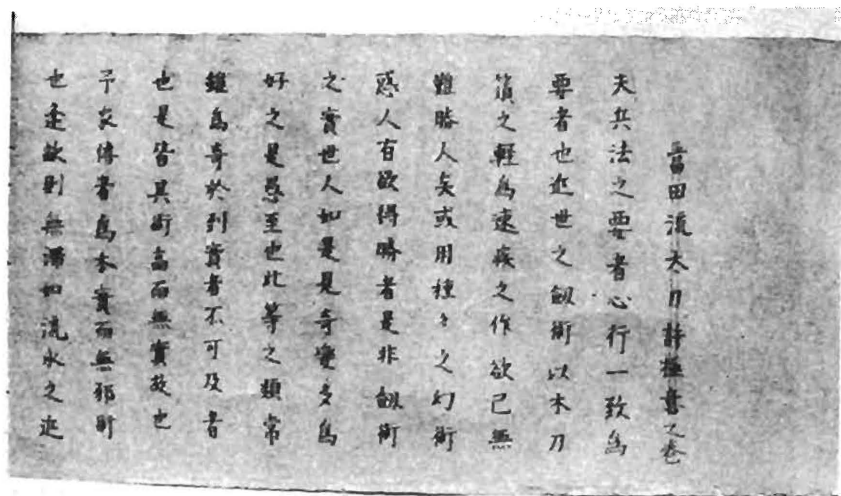 當田流太刀許極意之巻
夫兵法之要者心行一致為
要者也近世之劔術以木刀
之輕為速疾之作欲己無
難勝人矣或用種々之幻術
惑人有欲得勝者是非劔術
之實世人如是見奇變多為
好之是愚至也此等之類常
雖為奇於到實者不可及者
也是皆其術高而無實故也
予家傳者為本實而無邪則
也逢敵則無滞如流水之